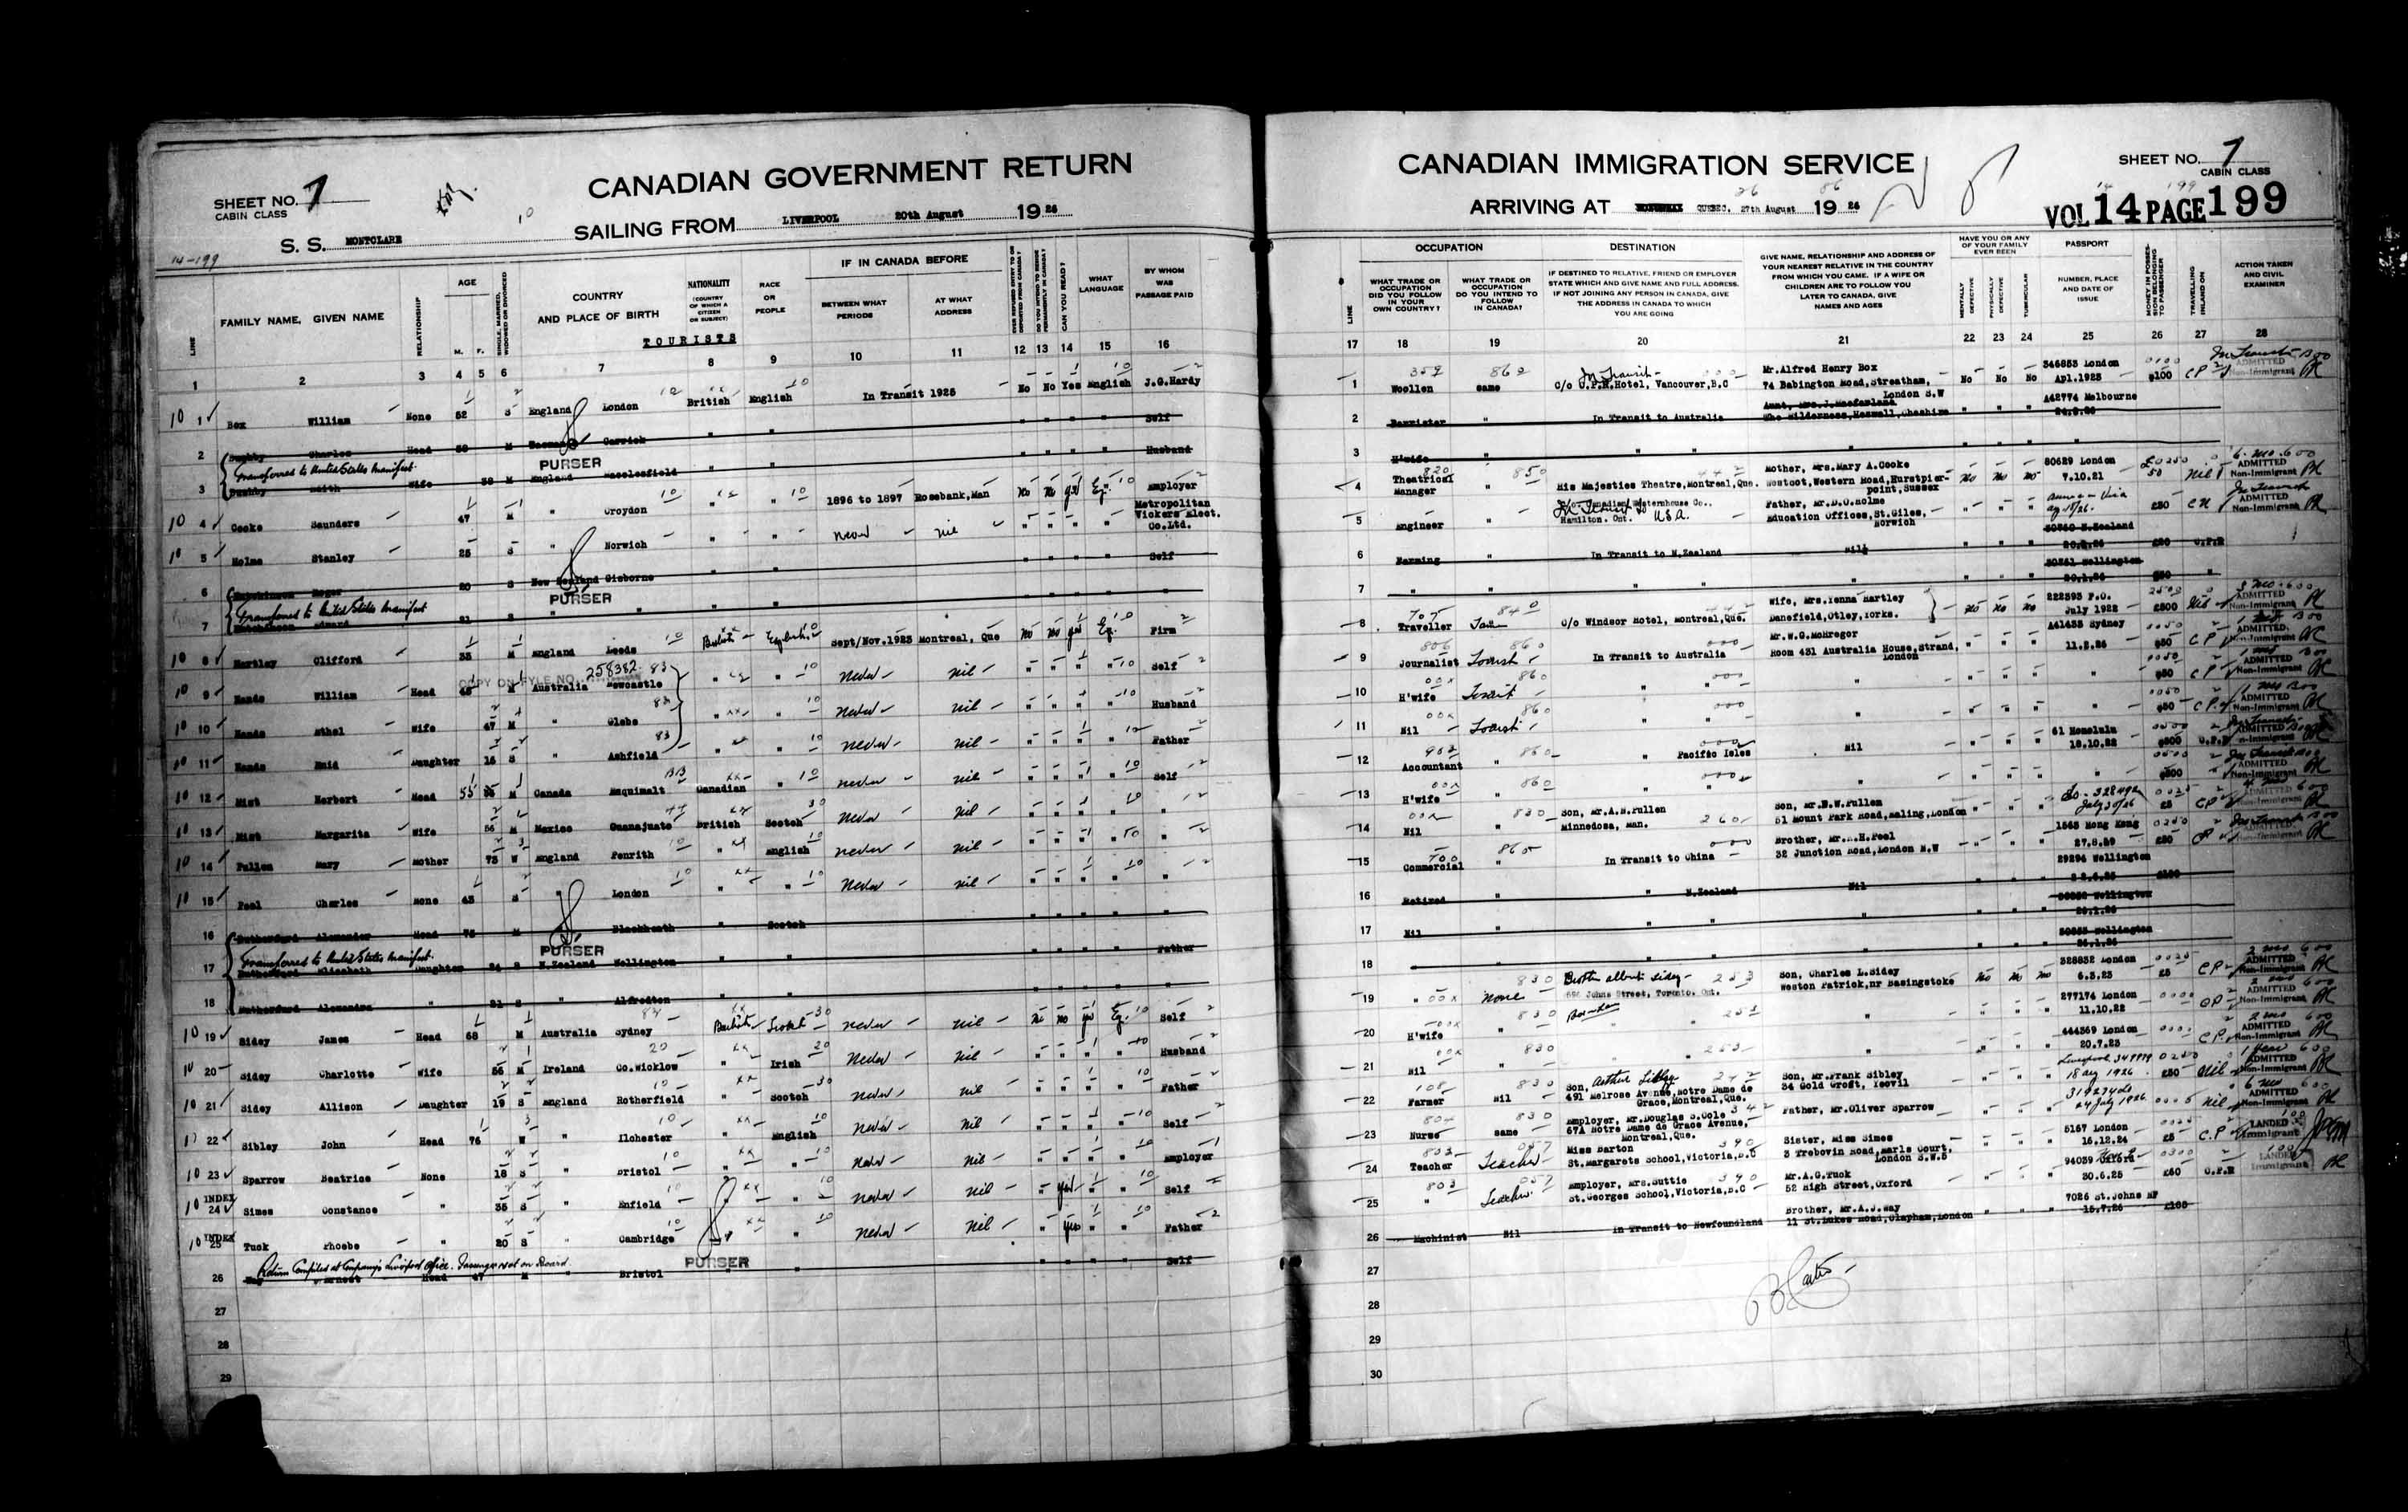 CANADIAN GOVERNMENT RETURN
SHEET NO. 7
CABIN CLASS
S. S. MONTCLARE
SAILING FROM LIVERPOOL 20th August 1926
14-199
LINE
FAMILY NAME, GIVEN NAME
RELATIONSHIP
AGE
M. F.
SINGLE, MARRIED, WIDOWED OR DIVORCED
COUNTRY AND PLACE OF BIRTH
TOURISTS
NATIONALITY (COUNTRY OF WHICH A CITIZEN OR SUBJECT)
RACE OR PEOPLE
IF IN CANADA BEFORE
BETWEEN WHAT PERIODS
AT WHAT ADDRESS
CAN YOU READ?
WHAT LANGUAGE
BY WHOM WAS PASSAGE PAID
1 2 3 4 5 6 7 8 9 10 11 12 13 14 15 16
1 Box William None 52 S England London British English In Transit 1925 No No Yes English J.G.Hardy
2 Charles Head M " " Self
Transferred to United States Manifest. PURSER
3 Edith Wife 38 M England Macclesfield " " Husband
4 Cooke Saunders 47 M " Croydon " " 1896 to 1897 Rosebank,Man No No yes Eng. Employer
5 Holme Stanley 25 S " Norwich " " never nil Metropolitan Vickers Elect. Co.Ltd.
6 Hutchinson Roger 20 S New Zealand Gisborne " " Self
Transferred to United States Manifest PURSER
7 Hutchinson Edward 21 S " " " "
8 Hartley Clifford 35 M England Leeds British English Sept/Nov.1923 Montreal, Que no no yes Eng. Firm
COPY ON FYLE NO. 258382
9 Hands William Head 48 M Australia Newcastle " " never nil Self
10 Hands Ethel Wife 47 M " Glebe " " never nil Husband
11 Hands Enid Daughter 16 S " Ashfield " " never nil Father
12 Mist Herbert Head 55 M Canada Esquimalt Canadian " never nil Self
13 Mist Margarita Wife 56 M Mexico Guanajuato British Scotch never nil "
14 Pullen Mary Mother 73 W England Penrith " English never nil "
15 Peel Charles None 43 S " London " " never nil "
16 Rutherford Alexander Head 75 M " Blackheath " Scotch "
Transferred to United States Manifest. PURSER
17 Rutherford Elizabeth Daughter 24 S N.Zealand Wellington " " Father
18 Rutherford Alexandra " 21 S " Alfredton " " "
19 Sidey James Head 68 M Australia Sydney British Scotch never nil no no yes Eng. Self
20 Sidey Charlotte Wife 56 M Ireland Co.Wicklow " Irish never nil Husband
21 Sidey Allison Daughter 19 S England Rotherfield " Scotch never nil Father
22 Sibley John Head 76 W " Ilchester " English never nil Self
23 Sparrow Beatrice None 18 S " Bristol " " never nil Employer
INDEX 24 Simes Constance " 35 S " Enfield " " never nil yes Self
INDEX 25 Tuck Phoebe " 20 S " Cambridge " " never nil yes Father
Return Compiled at Company's Liverpool Office. Passenger not on Board.
26 Way Ernest Head 47 M " Bristol " " Self
PURSER
27
28
29
CANADIAN IMMIGRATION SERVICE
SHEET NO. 7
CABIN CLASS
ARRIVING AT QUEBEC, 27th August 1926
VOL 14 PAGE 199
LINE
OCCUPATION
WHAT TRADE OR OCCUPATION DID YOU FOLLOW IN YOUR OWN COUNTRY?
WHAT TRADE OR OCCUPATION DO YOU INTEND TO FOLLOW IN CANADA?
DESTINATION
IF DESTINED TO RELATIVE, FRIEND OR EMPLOYER STATE WHICH AND GIVE NAME AND FULL ADDRESS. IF NOT JOINING ANY PERSON IN CANADA, GIVE THE ADDRESS IN CANADA TO WHICH YOU ARE GOING
GIVE NAME, RELATIONSHIP AND ADDRESS OF YOUR NEAREST RELATIVE IN THE COUNTRY FROM WHICH YOU CAME. IF A WIFE OR CHILDREN ARE TO FOLLOW YOU LATER TO CANADA, GIVE NAMES AND AGES
HAVE YOU OR ANY OF YOUR FAMILY EVER BEEN
MENTALLY DEFECTIVE
PHYSICALLY DEFECTIVE
TUBERCULAR
PASSPORT
NUMBER, PLACE AND DATE OF ISSUE
MONEY IN POSSESSION BELONGING TO PASSENGER
TRAVELLING INLAND ON
ACTION TAKEN AND CIVIL EXAMINER
17 18 19 20 21 22 23 24 25 26 27 28
1 Woollen same In Transit c/o C.P.R.Hotel, Vancouver,B.C Mr.Alfred Henry Box 74 Babington Road,Streatham, London S.W No No No 346853 London Apl.1925 $100 CP In Transit ADMITTED Non-Immigrant
2 Barrister " In Transit to Australia Aunt, Mrs.J.Macfarlane The Wilderness,Heswall,Cheshire " " " A42774 Melbourne
3 H'wife " " " " " " " "
4 Theatrical Manager " His Majesties Theatre,Montreal,Que. Mother, Mrs.Mary A.Cooke Westcot,Western Road,Hurstpierpoint,Sussex No No No 80629 London 7.10.21 £50 nil 6 mo. ADMITTED Non-Immigrant
5 Engineer " In Transit to U.S.A. Hamilton. Ont. Father, Mr.D.O.Holme Education Offices,St.Giles, Norwich " " " £50 CN In Transit ADMITTED Non-Immigrant
6 Farming " In Transit to N.Zealand Nil " " " N.Zealand £20 C.P.R
7 " " " " " " " " Wellington 20.1.26
8 Traveller Same C/o Windsor Hotel, Montreal,Que. Wife, Mrs.Yenna Hartley Danefield,Otley,Yorks. No No No 222393 F.O. July 1922 £500 Nil 3 mo. ADMITTED Non-Immigrant
9 Journalist Tourist In Transit to Australia Mr.W.G.McGregor Room 431 Australia House,Strand, London " " " A41435 Sydney 11.2.26 $50 CP ADMITTED Non-Immigrant
10 H'wife Tourist " " " " " " " $50 CP ADMITTED Non-Immigrant
11 Nil Tourist " " " " " " " $50 CP ADMITTED Non-Immigrant
12 Accountant " " Pacific Isles Nil " " " 61 Honolulu 18.10.22 $500 C.P.R In Transit ADMITTED Non-Immigrant
13 H'wife " " " " " " " " $500 " In Transit ADMITTED Non-Immigrant
14 Nil " Son, Mr.A.S.Pullen Minnedosa, Man. Son, Mr.E.W.Pullen 51 Mount Park Road,Ealing,London " " " 328492 July 30/26 £5 CP ADMITTED Non-Immigrant
15 Commercial " In Transit to China Brother, Mr.R.H.Peel 32 Junction Road,London N.W " " " 1565 Hong Kong £50 CP In Transit ADMITTED Non-Immigrant
16 Retired " " N.Zealand Nil " " " 29294 Wellington £100
17 Nil " " " " " " " Wellington 20.1.26
18 " " " " " " " " Wellington
19 " None Brother Albert Sidey Johns Street, Toronto. Ont. Son, Charles L.Sidey Weston Patrick,nr Basingstoke No No No 328832 London 6.3.23 £5 CP 2 mo ADMITTED Non-Immigrant
20 H'wife " " " " " " 277174 London 11.10.22 CP ADMITTED Non-Immigrant
21 Nil " " " " " " 444369 London 20.7.23 C.P. 2 mo ADMITTED Non-Immigrant
22 Farmer Nil Son, Arthur Sibley 491 Melrose Avenue,Notre Dame de Grace,Montreal,Que. Son, Mr.Frank Sibley 34 Gold Croft, Yeovil " " " Liverpool 18 Aug 1926 £50 nil 1 year ADMITTED Non-Immigrant
23 Nurse same Employer, Mr.Douglas S.Cole 67A Notre Dame de Grace Avenue, Montreal,Que. Father, Mr.Oliver Sparrow " " " 24 July 1926 nil 6 mo ADMITTED Non-Immigrant
24 Teacher Teacher Miss Barton St.Margarets School,Victoria,B.C Sister, Miss Simes 3 Trebovin Road,Earls Court, London S.W.5 " " " 5167 London 16.12.24 £5 C.P LANDED Immigrant
25 " Teacher Employer, Mrs.Suttie St.Georges School,Victoria,B.C Mr.A.G.Tuck 52 High Street,Oxford " " " 94039 30.6.25 £60 C.P.R LANDED Immigrant
26 Machinist Nil In Transit to Newfoundland Brother, Mr.A.J.Way 11 St.Lukes Road,Clapham,London " " " 7026 St.Johns NF 15.7.26 £100
27
28
29
30